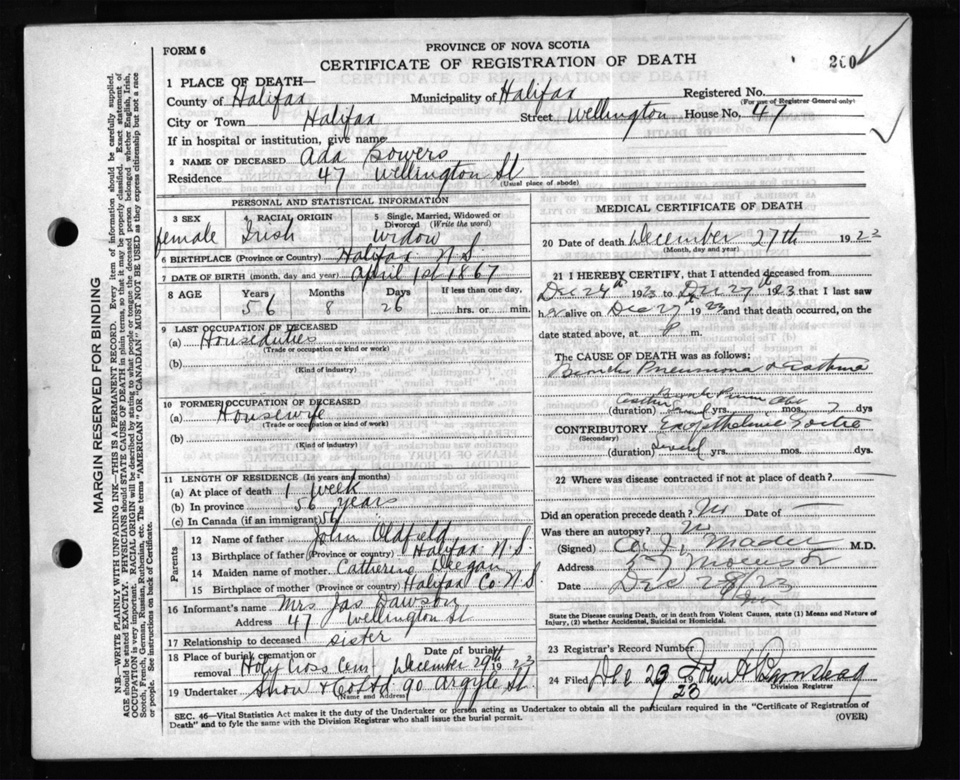 FORM 6
PROVINCE OF NOVA SCOTIA
CERTIFICATE OF REGISTRATION OF DEATH
260
1 PLACE OF DEATH—
County of Halifax Municipality of Halifax Registered No.
(For use of Registrar General only)
City or Town Halifax Street Wellington House No. 47
If in hospital or institution, give name
2 NAME OF DECEASED Ada Bowers
Residence 47 Wellington St
(Usual place of abode)
PERSONAL AND STATISTICAL INFORMATION
3 SEX 4 RACIAL ORIGIN 5 Single, Married, Widowed or
Divorced (Write the word)
female Irish widow
6 BIRTHPLACE (Province or Country) Halifax N S
7 DATE OF BIRTH (month, day and year) April 1st 1867
8 AGE Years Months Days If less than one day.
56 8 26 hrs. or min.
9 LAST OCCUPATION OF DECEASED
(a) Houseduties
(Trade or occupation or kind or work)
(b)
(Kind of industry)
10 FORMER OCCUPATION OF DECEASED
(a) Housewife
(Trade or occupation or kind or work)
(b)
(Kind of industry)
11 LENGTH OF RESIDENCE (In years and months)
(a) At place of death 1 week
(b) In province 56 years
(c) In Canada (if an immigrant) 56
Parents
12 Name of father John Oldfield
13 Birthplace of father (Province or country) Halifax N. S.
14 Maiden name of mother Catherine Deegan
15 Birthplace of mother (Province or country) Halifax Co N S
16 Informant's name Mrs Jas Dawson
Address 47 Wellington St
17 Relationship to deceased sister
18 Place of burial, cremation or removal Holy Cross Cem Date of burial December 29th 1923
19 Undertaker Snow & Co Ltd 90 Argyle St.
(Name and Address)
MEDICAL CERTIFICATE OF DEATH
20 Date of death December 27th 1923
(Month, day and year)
21 I HEREBY CERTIFY, that I attended deceased from
Dec 24th 1923 to Dec 27th 1923 that I last saw
her alive on Dec 27th 1923 and that death occurred, on the
date stated above, at P m.
The CAUSE OF DEATH was as follows:
Broncho Pneumonia & Asthma
(duration) yrs. mos. 7 dys
CONTRIBUTORY Exophthalmic Goitre
(Secondary)
(duration) several yrs. mos. dys.
22 Where was disease contracted if not at place of death?
Did an operation precede death? No Date of —
Was there an autopsy? No
(Signed) Mader M.D.
Address 57 Morris St
Date Dec 28/23
State the Disease Causing Death, or in death from Violent Causes, state (1) Means and Nature of
Injury, (2) whether Accidental, Suicidal or Homicidal.
23 Registrar's Record Number
24 Filed Dec 29 1923 John
Division Registrar
SEC. 46—Vital Statistics Act makes it the duty of the Undertaker or person acting as Undertaker to obtain all the particulars required in the "Certificate of Registration of
Death" and to fyle the same with the Division Registrar who shall issue the burial permit.
(OVER)
MARGIN RESERVED FOR BINDING
N.B.—WRITE PLAINLY WITH UNFADING INK—THIS IS A PERMANENT RECORD. Every item of information should be carefully supplied.
AGE should be stated EXACTLY. PHYSICIANS should STATE CAUSE OF DEATH in plain terms, so that it may be properly classified. Exact statement of
OCCUPATION is very important. RACIAL ORIGIN will be described by stating to what people or tongue the deceased person belonged whether English, Irish,
Scotch, French, German, Russian, Ruthenian, etc. The terms "AMERICAN" OR "CANADIAN" MUST NOT BE USED as they express citizenship but not a race
or people. See instructions on back of Certificate.